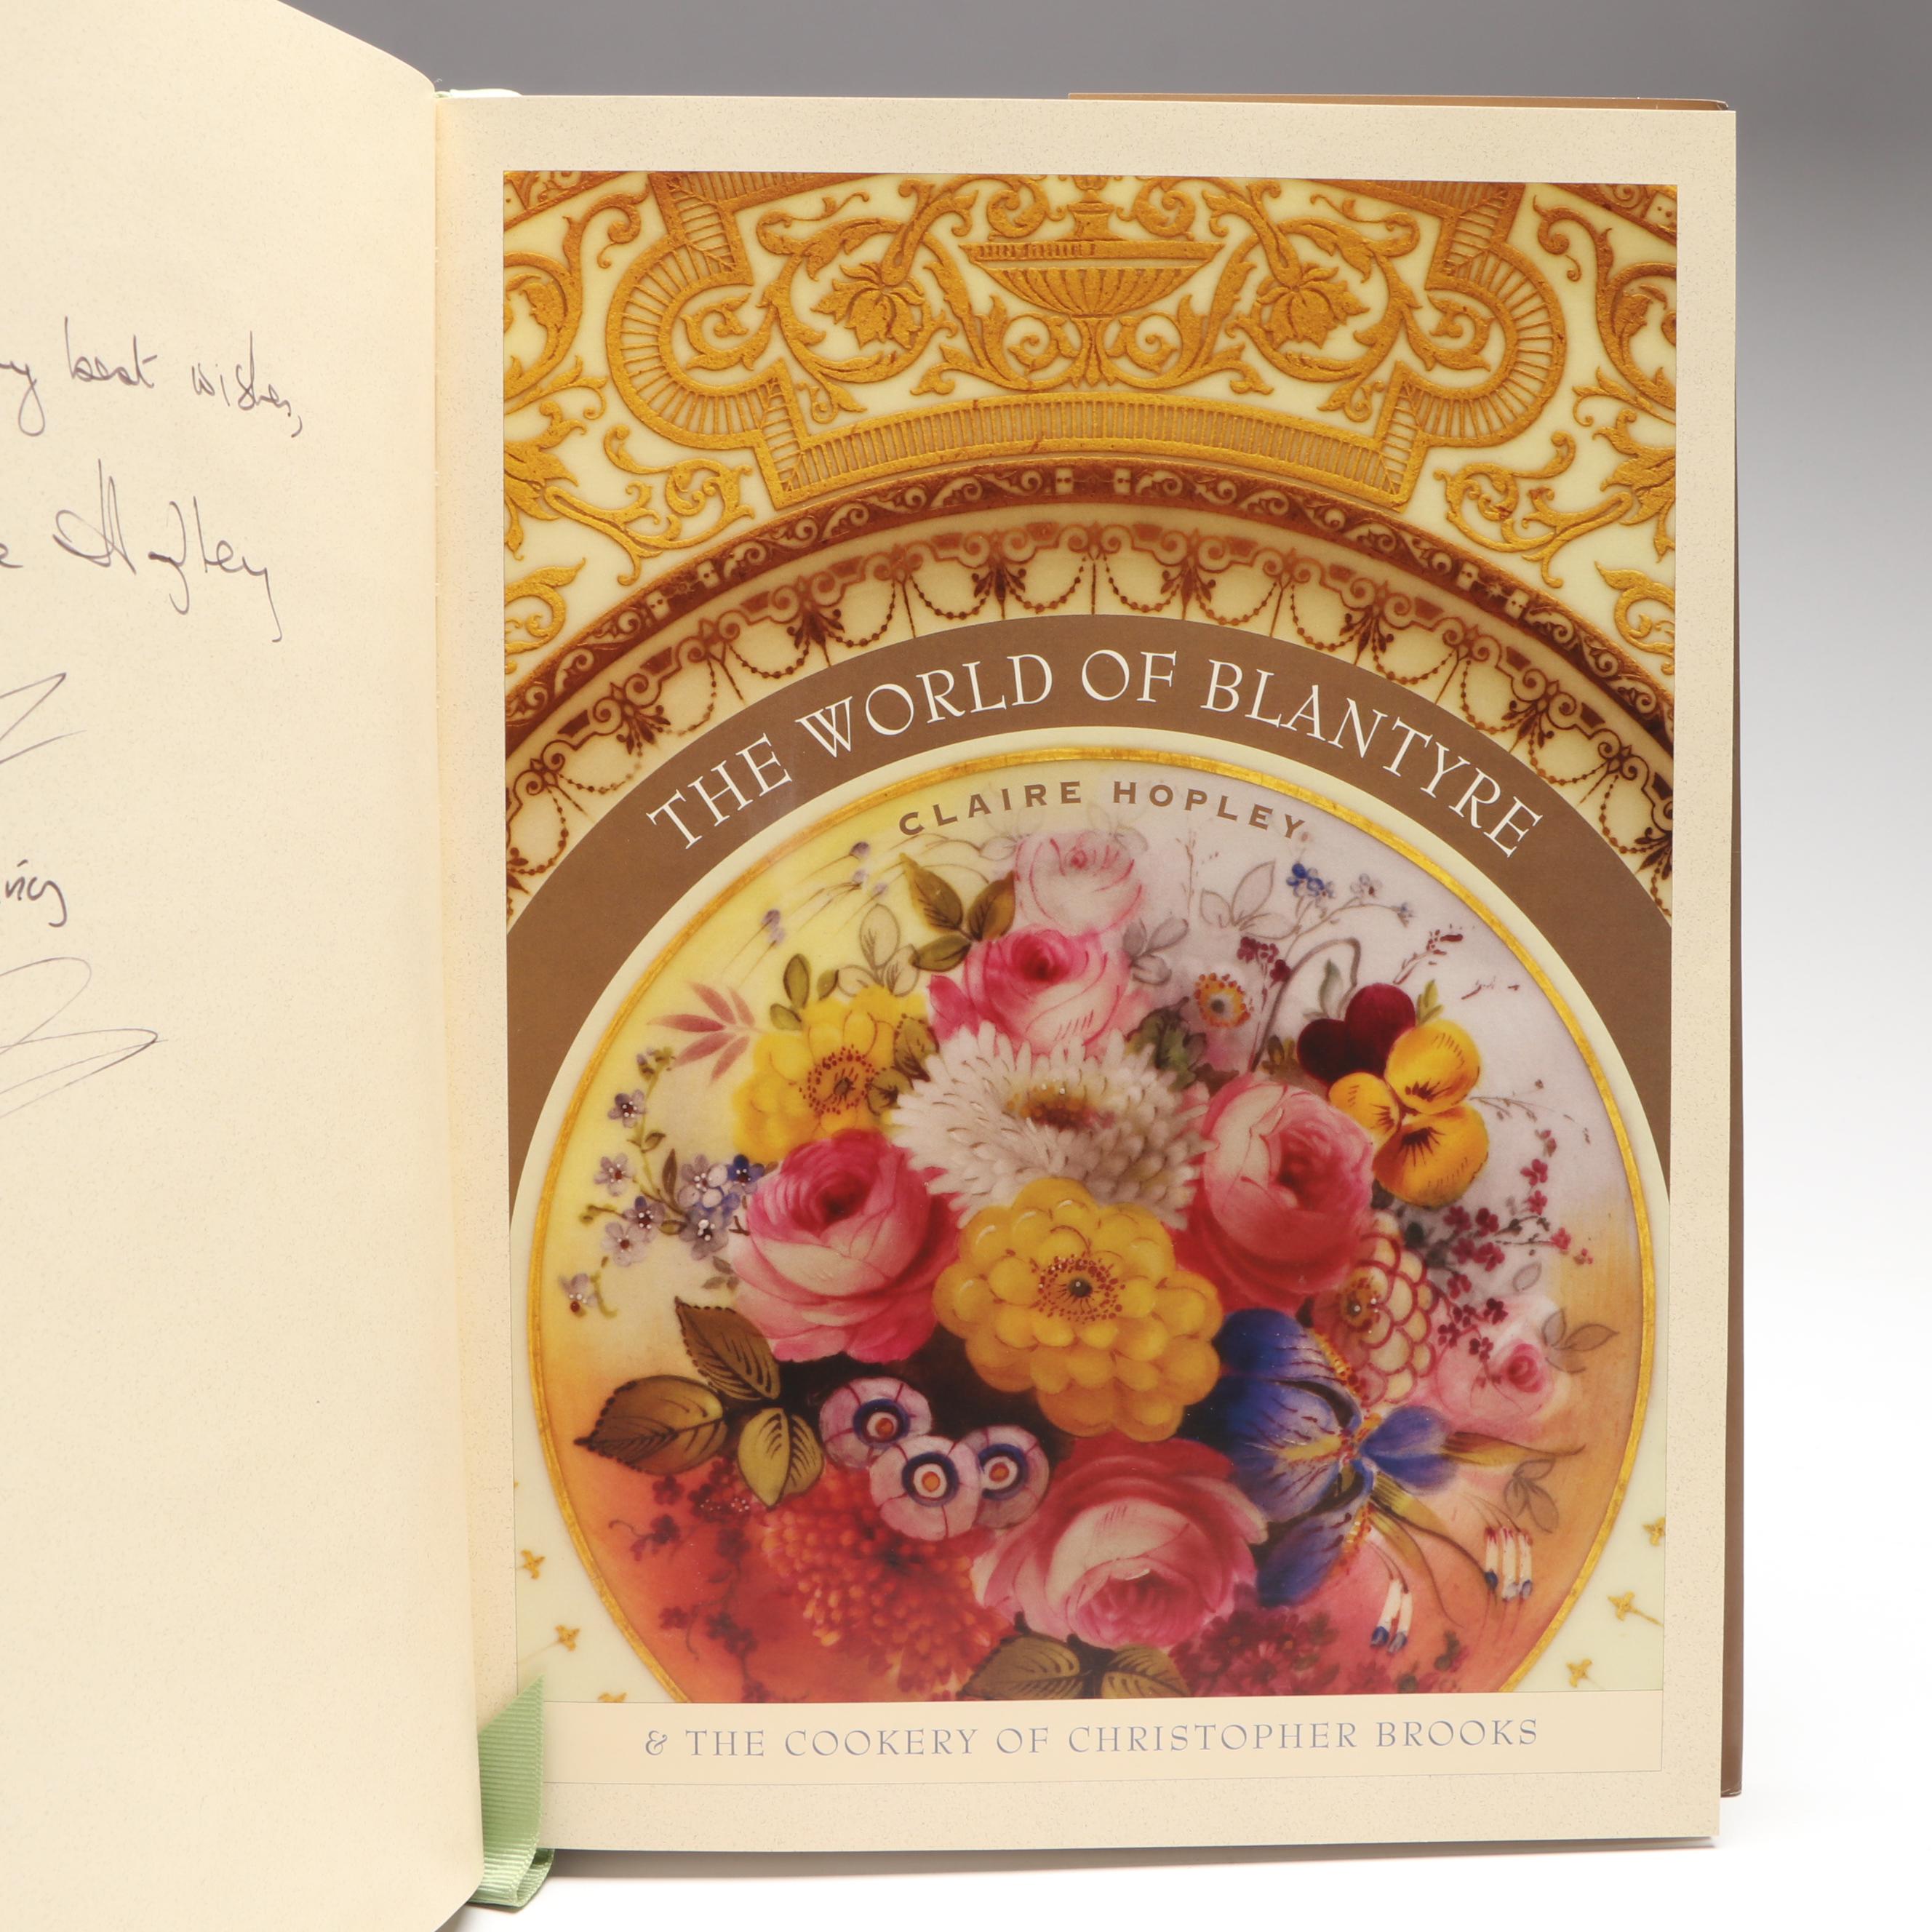 best wishes,
Hopley
THE WORLD OF BLANTYRE
CLAIRE HOPLEY
& THE COOKERY OF CHRISTOPHER BROOKS